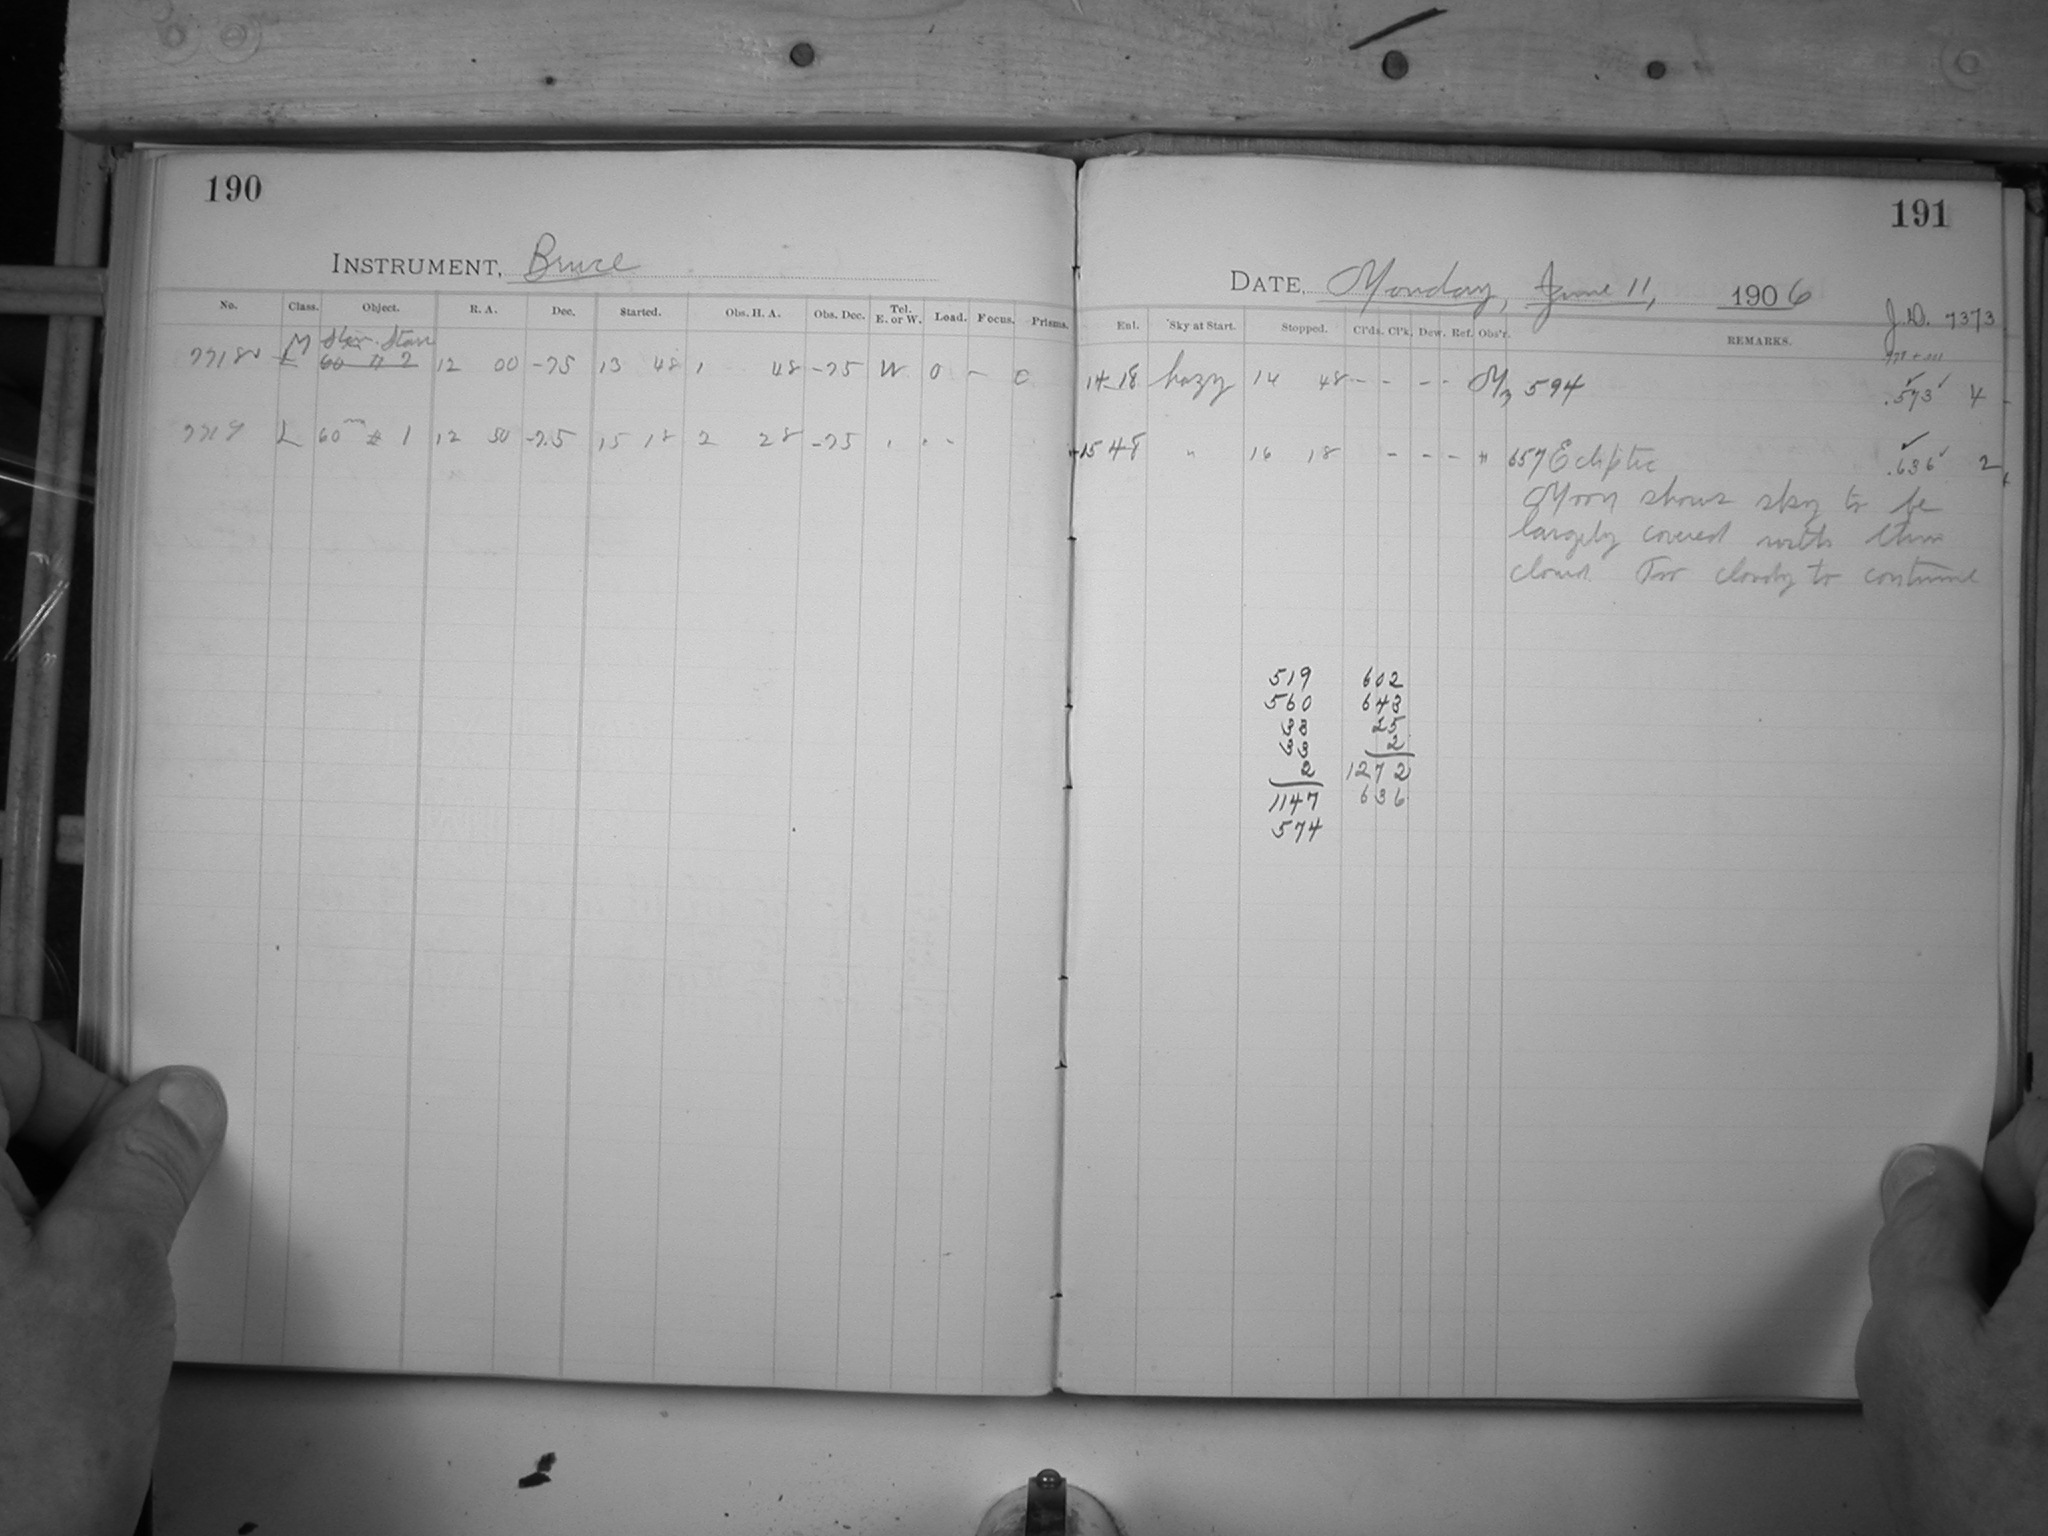 190
INSTRUMENT, Bruce
No. Class. Object. R. A. Dec. Started. Obs. H. A. Obs. Dec. Tel. E. or W. Load. Focus. Prisms.
M Stars
L 60 # 2 12 00 -75 13 48 1 48 -75 W 0 - 0
L 60m # 1 12 50 -75 15 18 2 28 -75 " " -
191
DATE, Monday, June 11, 1906
J.D. 7373
Ent. Sky at Start. Stopped. Cl'ds. Cl'k. Dew. Ref. Obs'r. REMARKS.
14 18 hazy 14 48 - - - - 594 .573 4
15 48 " 16 18 - - - " 657 Ecliptic .636 2
Moon shows sky to be
largely covered with thin
cloud. Too cloudy to continue
519 602
560 643
33 25
33 2
2 1272
1147 636
574